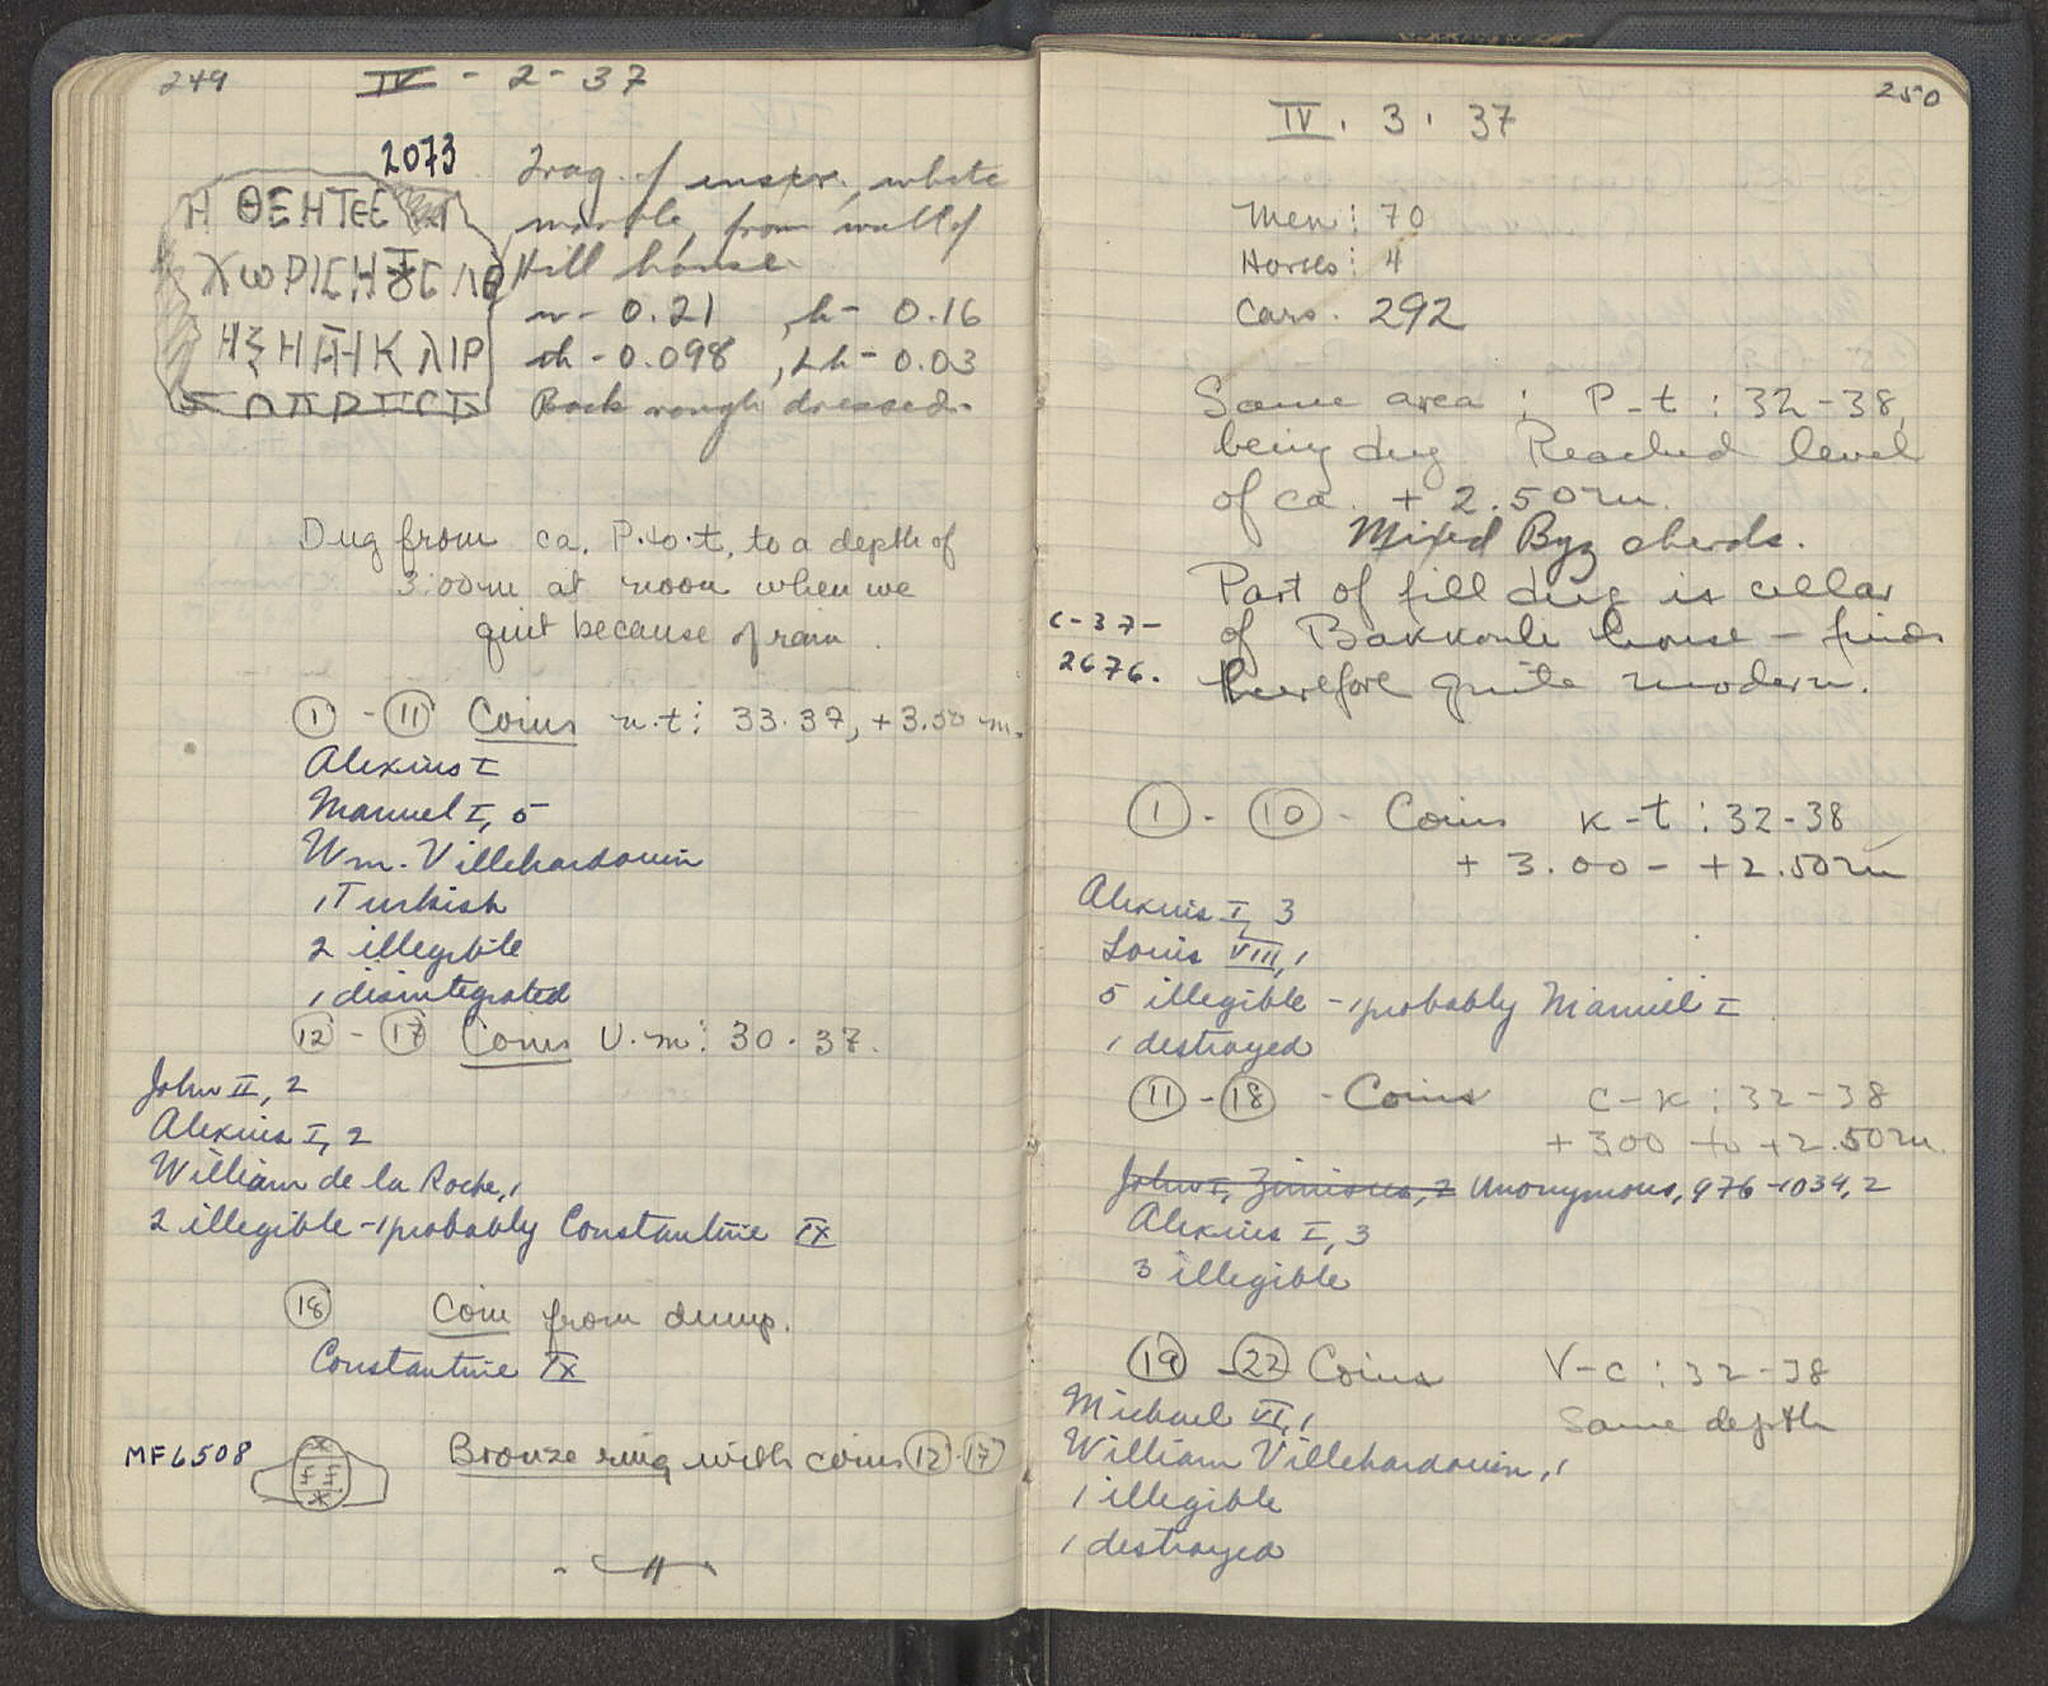 249
IV - 2 - 37
2073
Η ΘΕΗΤΕΕ
ΗΞΗ
Frag. of inscr., white
marble, from wall of
Hill house.
w - 0.21, h - 0.16
th - 0.098, Lh - 0.03
Back rough dressed.
Dug from ca. P. to t, to a depth of
3.00m at noon when we
quit because of rain.
1 - 11 Coins n.t: 33.37, +3.50 m.
Alexius I
Manuel I, 5
Wm. Villehardouin
1 Turkish
2 illegible
1 disintegrated
12 - 17 Coins V.m: 30.37.
John II, 2
Alexius I, 2
William de la Roche, 1
2 illegible - 1 probably Constantine IX
18 Coin from dump.
Constantine IX
MF6508 Bronze ring with coins 12-17
250
IV. 3. 37
Men: 70
Horses: 4
Cars. 292
Same area: P-t: 32-38,
being dug Reached level
of ca. + 2.50m.
Mixed Byz sherds.
Part of fill dug is cellar
of Bakkoule house - finds
therefore quite modern.
C-37-
2676.
1 - 10 - Coins K-t: 32-38
+ 3.00 - +2.50m
Alexius I, 3
Louis VIII, 1
5 illegible - 1 probably Manuel I
1 destroyed
11 - 18 - Coins C-K: 32-38
+ 3.00 to +2.50m.
John I, Zimisces, 2 Anonymous, 976-1034, 2
Alexius I, 3
3 illegible
19 - 22 Coins V-c: 32-38
Same depth
Michael VI, 1
William Villehardouin, 1
1 illegible
1 destroyed